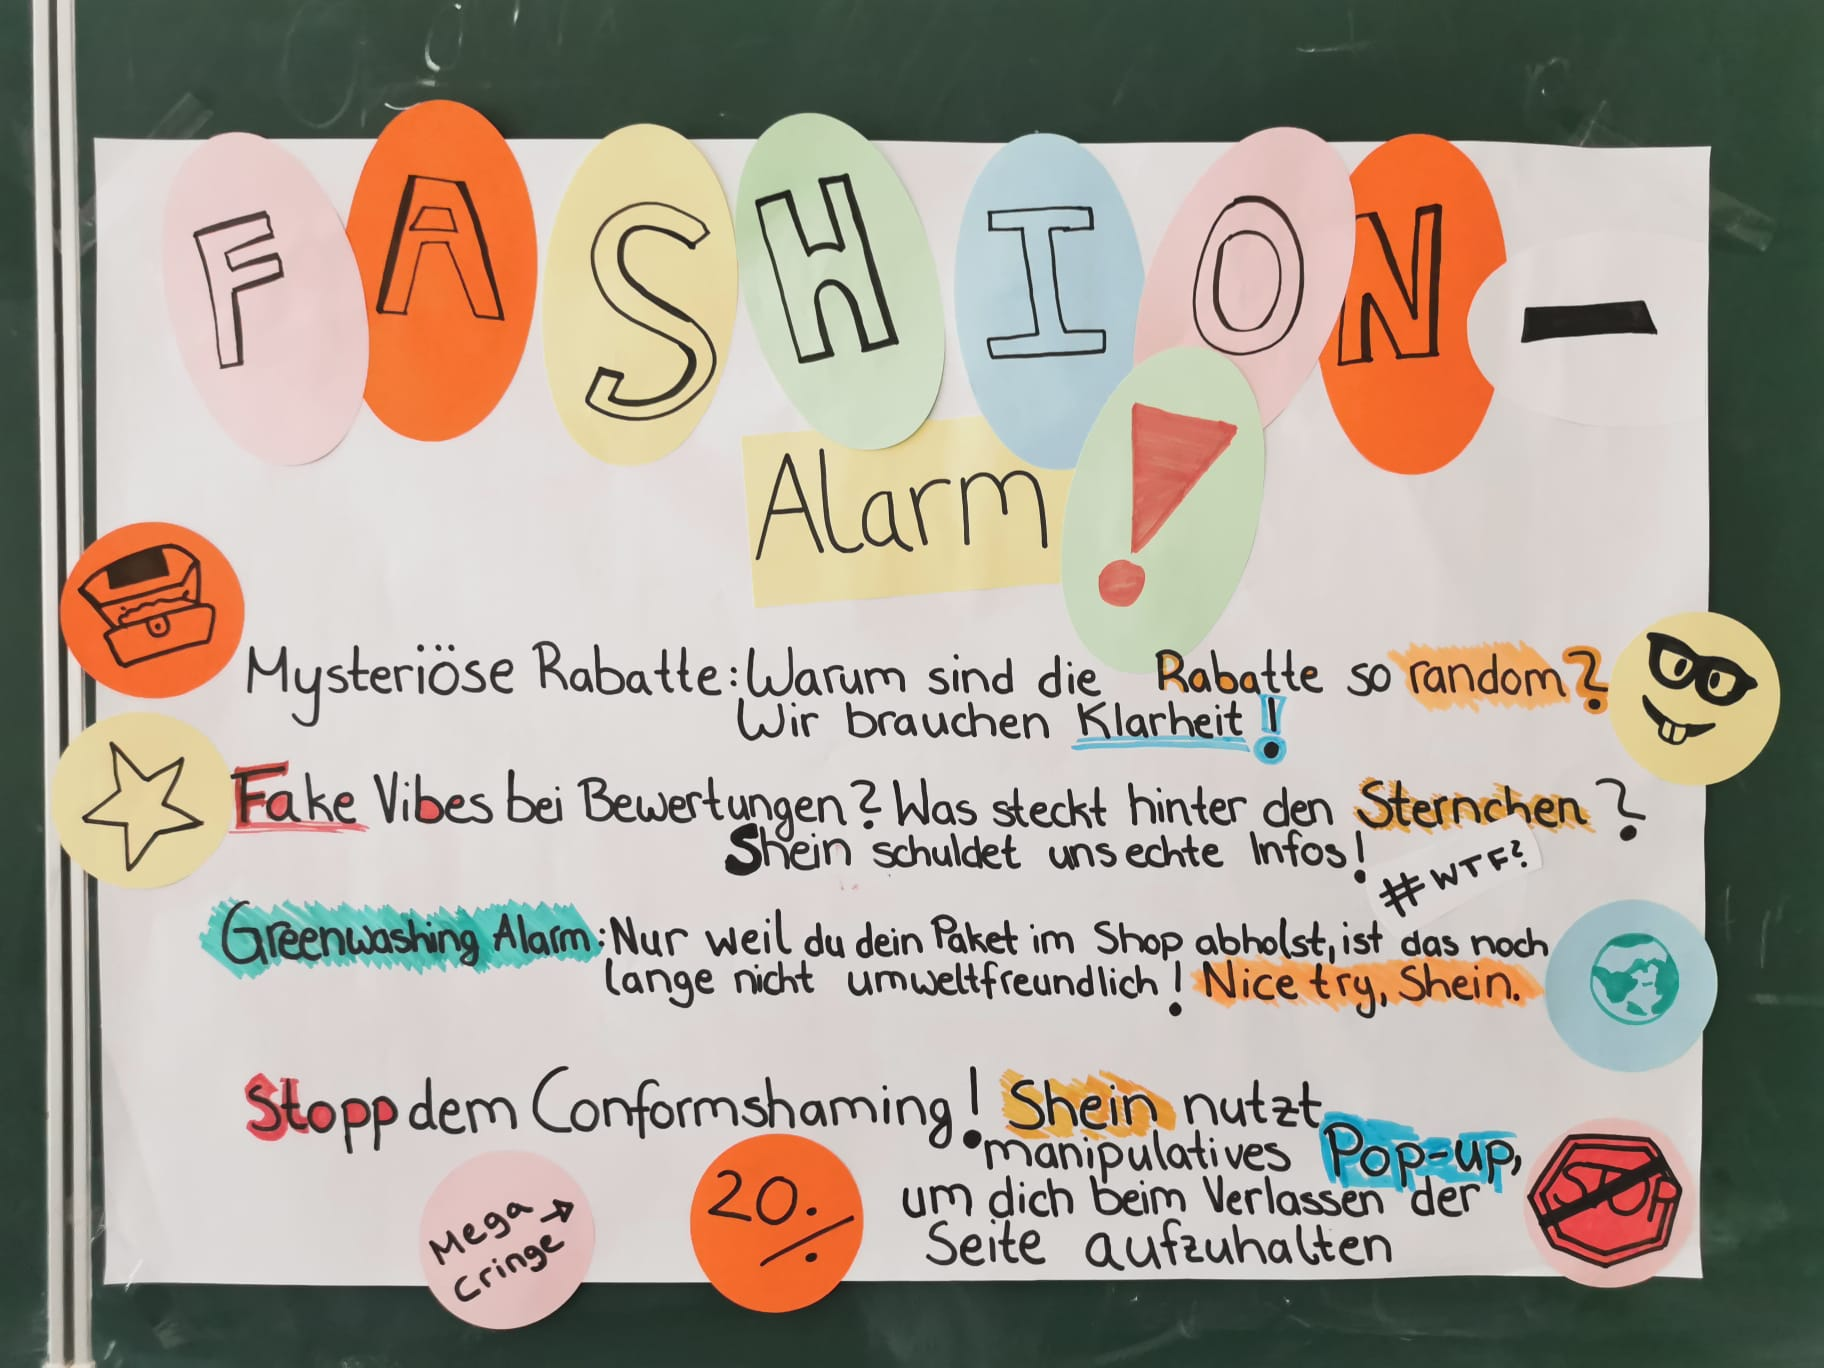 FASHION-
Alarm!
Mysteriöse Rabatte: Warum sind die Rabatte so random?
Wir brauchen Klarheit!
Fake Vibes bei Bewertungen? Was steckt hinter den Sternchen?
Shein schuldet uns echte Infos!
#WTF?
Greenwashing Alarm: Nur weil du dein Paket im Shop abholst, ist das noch
lange nicht umweltfreundlich! Nice try, Shein.
Stopp dem Conformshaming! Shein nutzt
manipulatives Pop-up,
um dich beim Verlassen der
Seite aufzuhalten
Mega →
cringe
20%
STOP